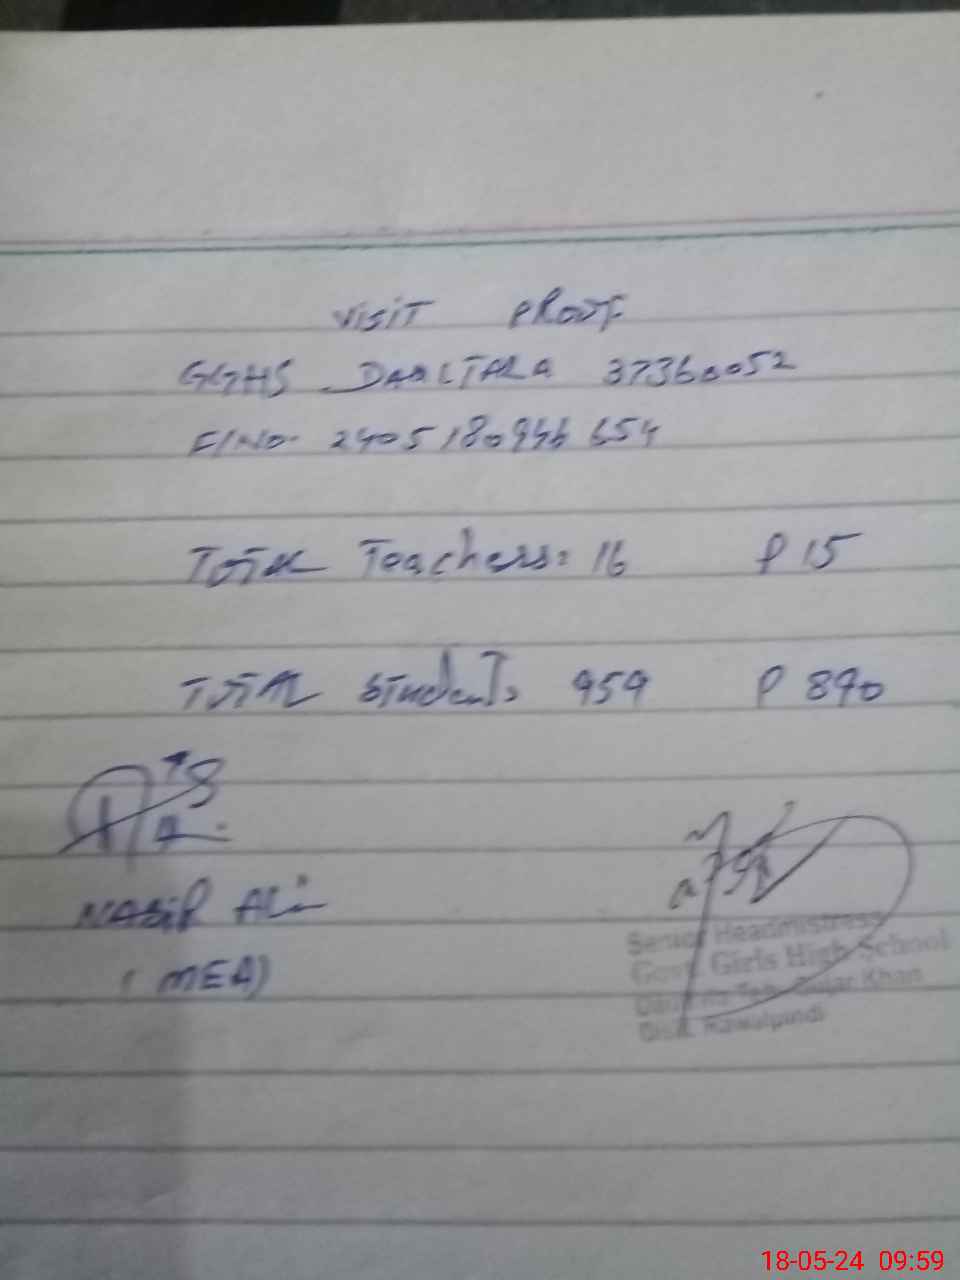 VISIT PROOF
GGHS DAULTALA 37360052
F/NO. 2405180946654
TOTAL Teachers: 16 P 15
TOTAL Students 959 P 890
NASIR ALi
(MEA)
Senior Headmistress
Govt. Girls High School
Teh. Gujar Khan
Distt. Rawalpindi
18-05-24 09:59